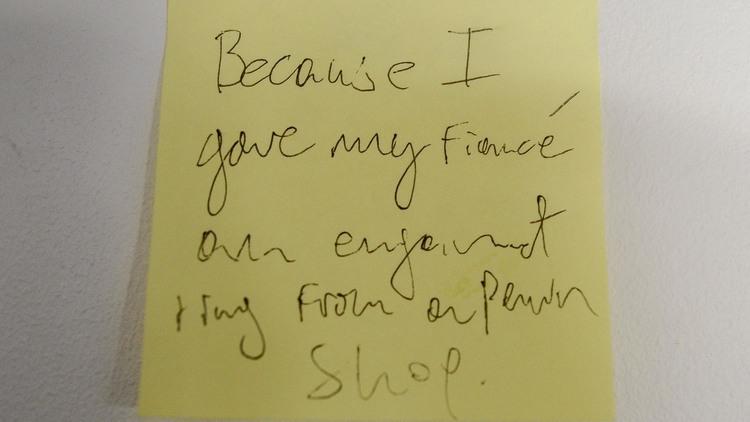 Because I
gave my Fiancé
an engaument
ring From a Pawn
Shop.